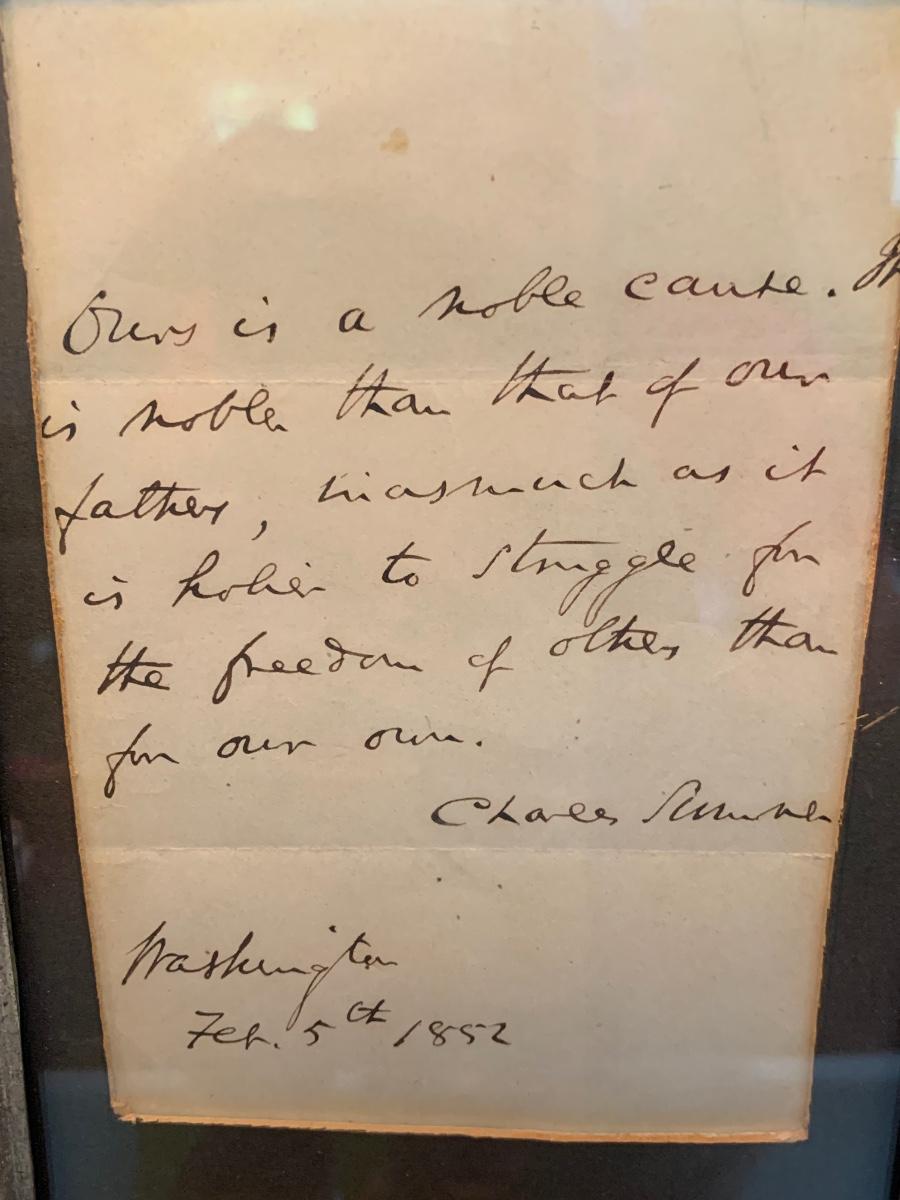 Ours is a noble cause.
is nobler than that of our
fathers, inasmuch as it
is holier to struggle for
the freedom of others than
for our own.
Charles Sumner
Washington
Feb. 5th 1852